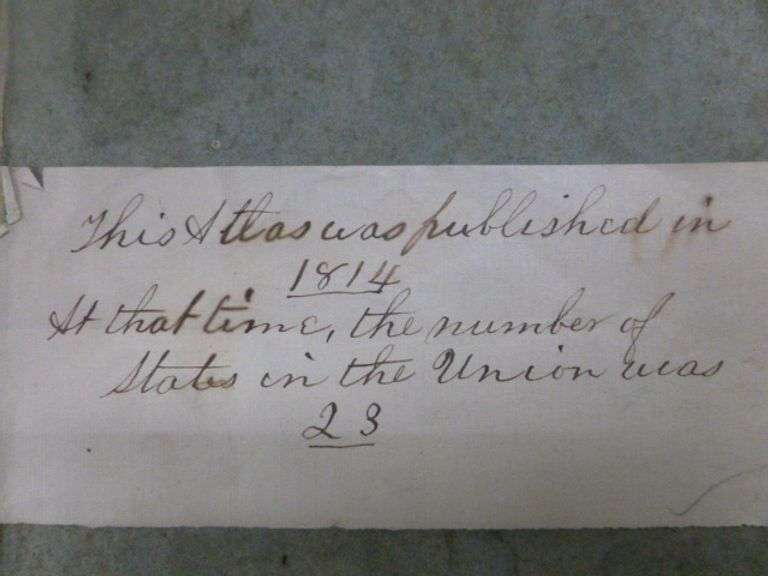 This Atlas was published in
1814
At that time, the number of
States in the Union was
23